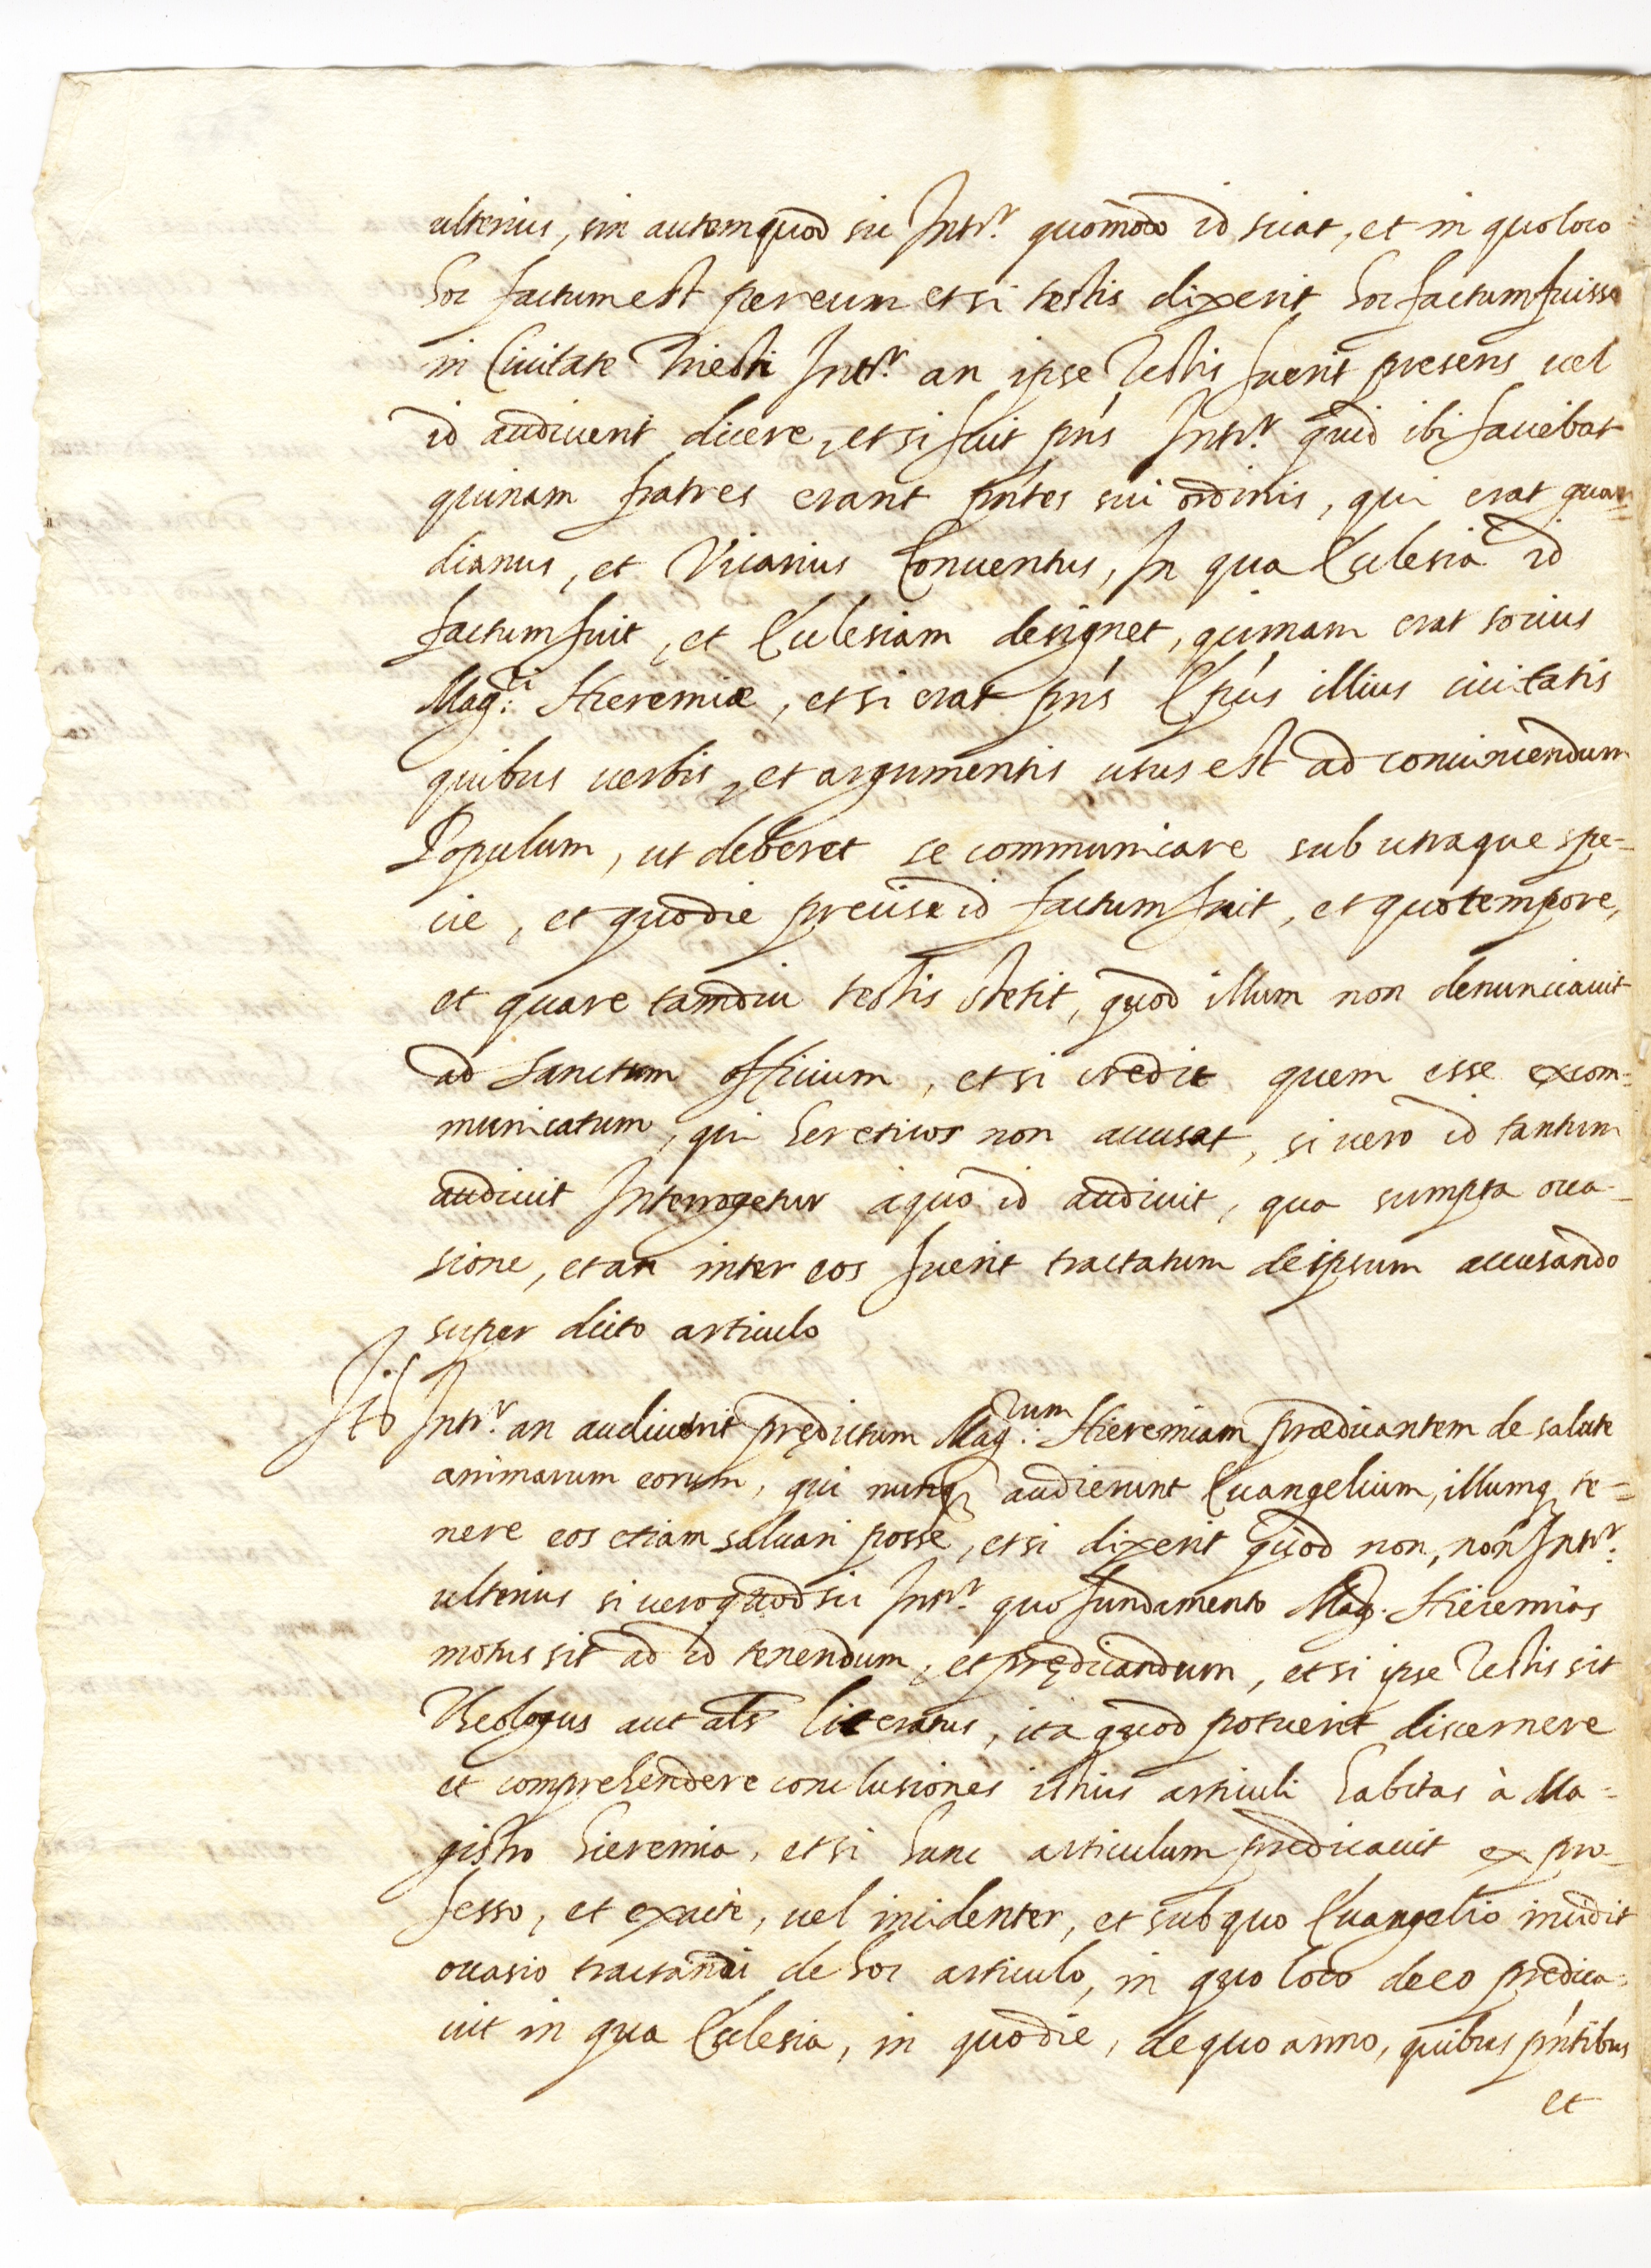 ulterius, sin autem quod sic Intr.r quomodo id sciat, et in quo loco
hoc factum est per eum et si testis dixerit hoc factum fuisse
in Ciuitate Triesti Intr.r an ipse Testis fuerit presens uel
id audiuerit dicere, et si fuit pns Intr.r quid ibi faciebat
quinam fratres erant pntes sui ordinis, qui erat guar=
dianus, et Vicarius Conuentus, In qua Ecclesia id
factum fuit, et Ecclesiam designet, quinam erat socius
Mag.ri Hieremiæ, et si erat pns Epus illius ciuitatis
quibus uerbis, et argumentis usus est ad conuincendum
Populum, ut deberet se communicare sub utraque spe=
cie, et quo die precise id factum fuit, et quo tempore,
et quare tamdiu testis stetit, quod illum non denunciauit
ad Sanctum officium, et si credit quem esse excom=
municatum, qui hereticos non accusat, si uero id tantum
audiuit Interrogetur à quo id audiuit, qua sumpta occa-
sione, et an inter eos fuerit tractatum de ipsum accusando
super dicto articulo
Itē Intr.r an audiuerit prędictum Mag.rum Hieremiam prædicantem de salute
animarum eorum, qui nunq audierunt Euangelium, illumq te=
nere eos etiam saluari posse, et si dixerit quod non, non Intr.r
ulterius si uero quod sic Intr.r quo fundamento Mag. Hieremias
motus sit ad id tenendum, et prędicandum, et si ipse Testis sit
Theologus aut als literatus, ita quod potuerit discernere
et comprehendere conclusiones istius articuli habitas à Ma=
gistro hieremia, et si hunc articulum predicauit ex pro-
fesso, et excitè, uel incidenter, et sub quo Euangelio incidit
occasio tractandi de hoc articulo, in quo loco de eo predica=
uit in qua Ecclesia, in quo die, de quo anno, quibus pntibus
et